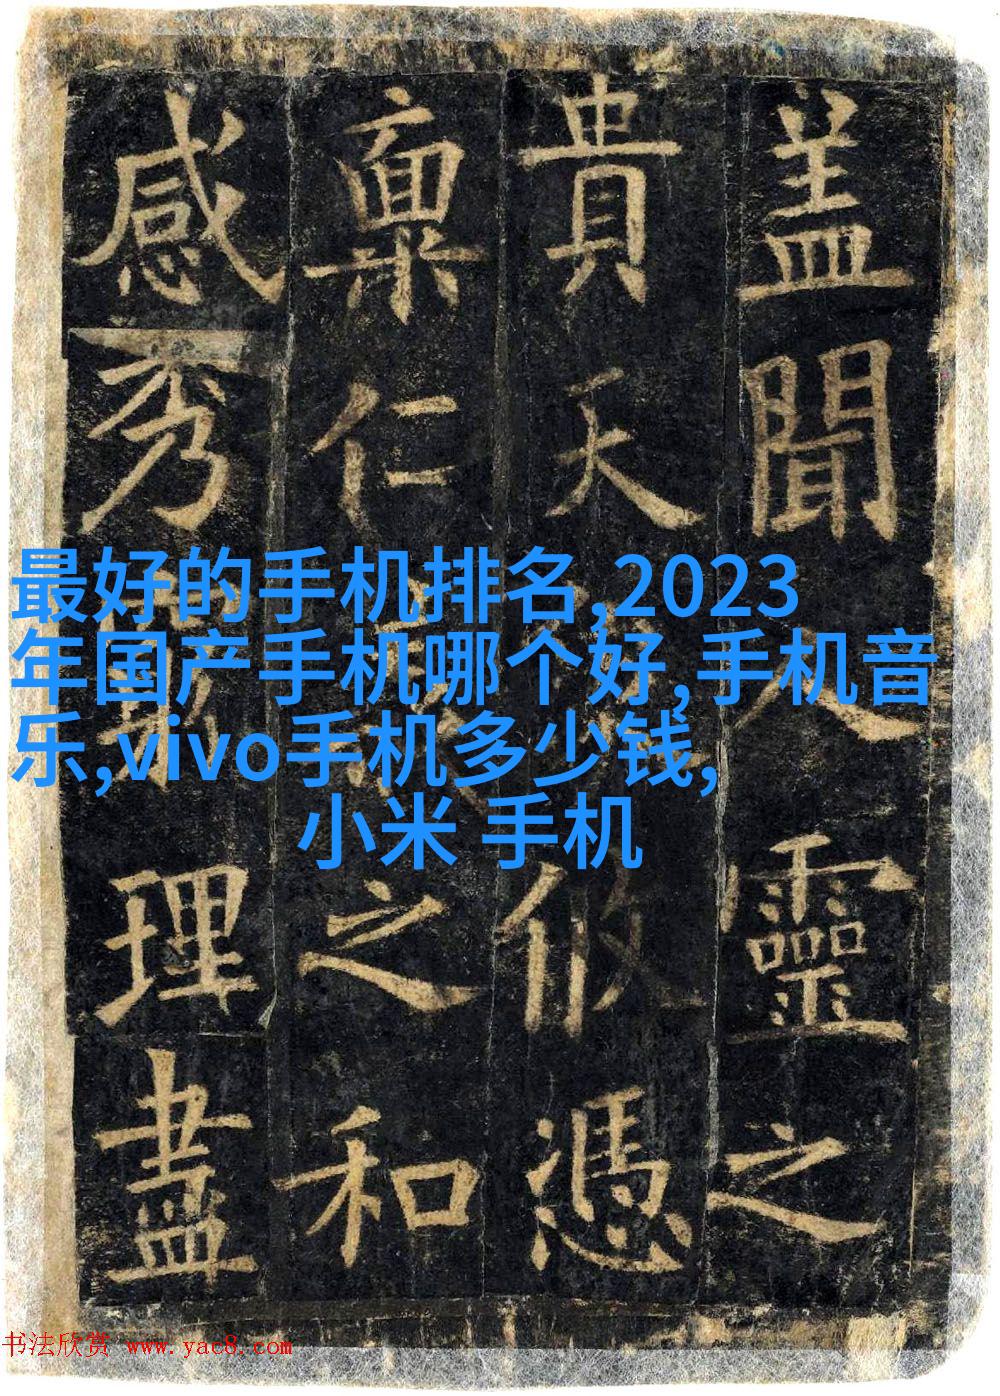 盖聞人靈之
貴天攸憑
稟仁之和
感秀理盡
最好的手机排名,2023
年国产手机哪个好,手机音
乐,vivo手机多少钱,
小米 手机
书法欣赏 www.yac8.com